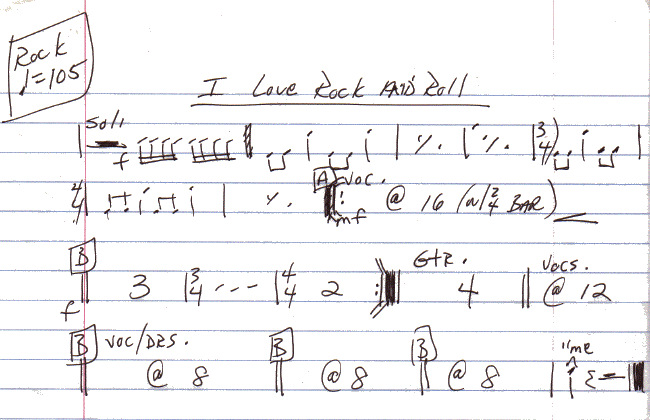 Rock
♩=105
I Love Rock AND Roll
Soli
f 3/4
4/4 A VOC.
mf @ 16 (w/ 2/4 BAR)
B GTR. VOCS.
f 3 3/4 4/4 2 4 @ 12
B VOC/DRS. B B "me
@ 8 @ 8 @ 8